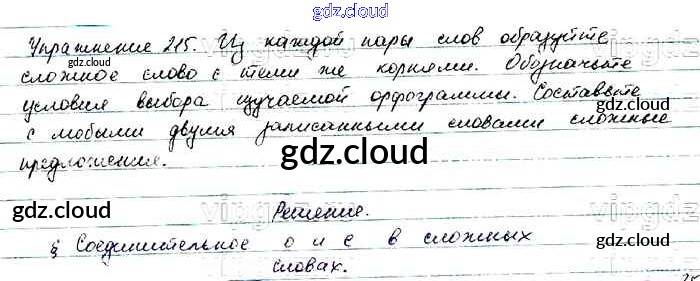 gdz.cloud
Упражнение 215. Из каждой пары слов образуйте
сложное слово с теми же корнями. Обозначьте
gdz.cloud
gdz.cloud
условия выбора изучаемой орфограммы. Составьте
gdz.cloud
с любыми двумя записанными словами сложные
предложения.
gdz.cloud
gdz.cloud
Решение.
§ Соединительное о и е в сложных
gdz.cloud
словах.